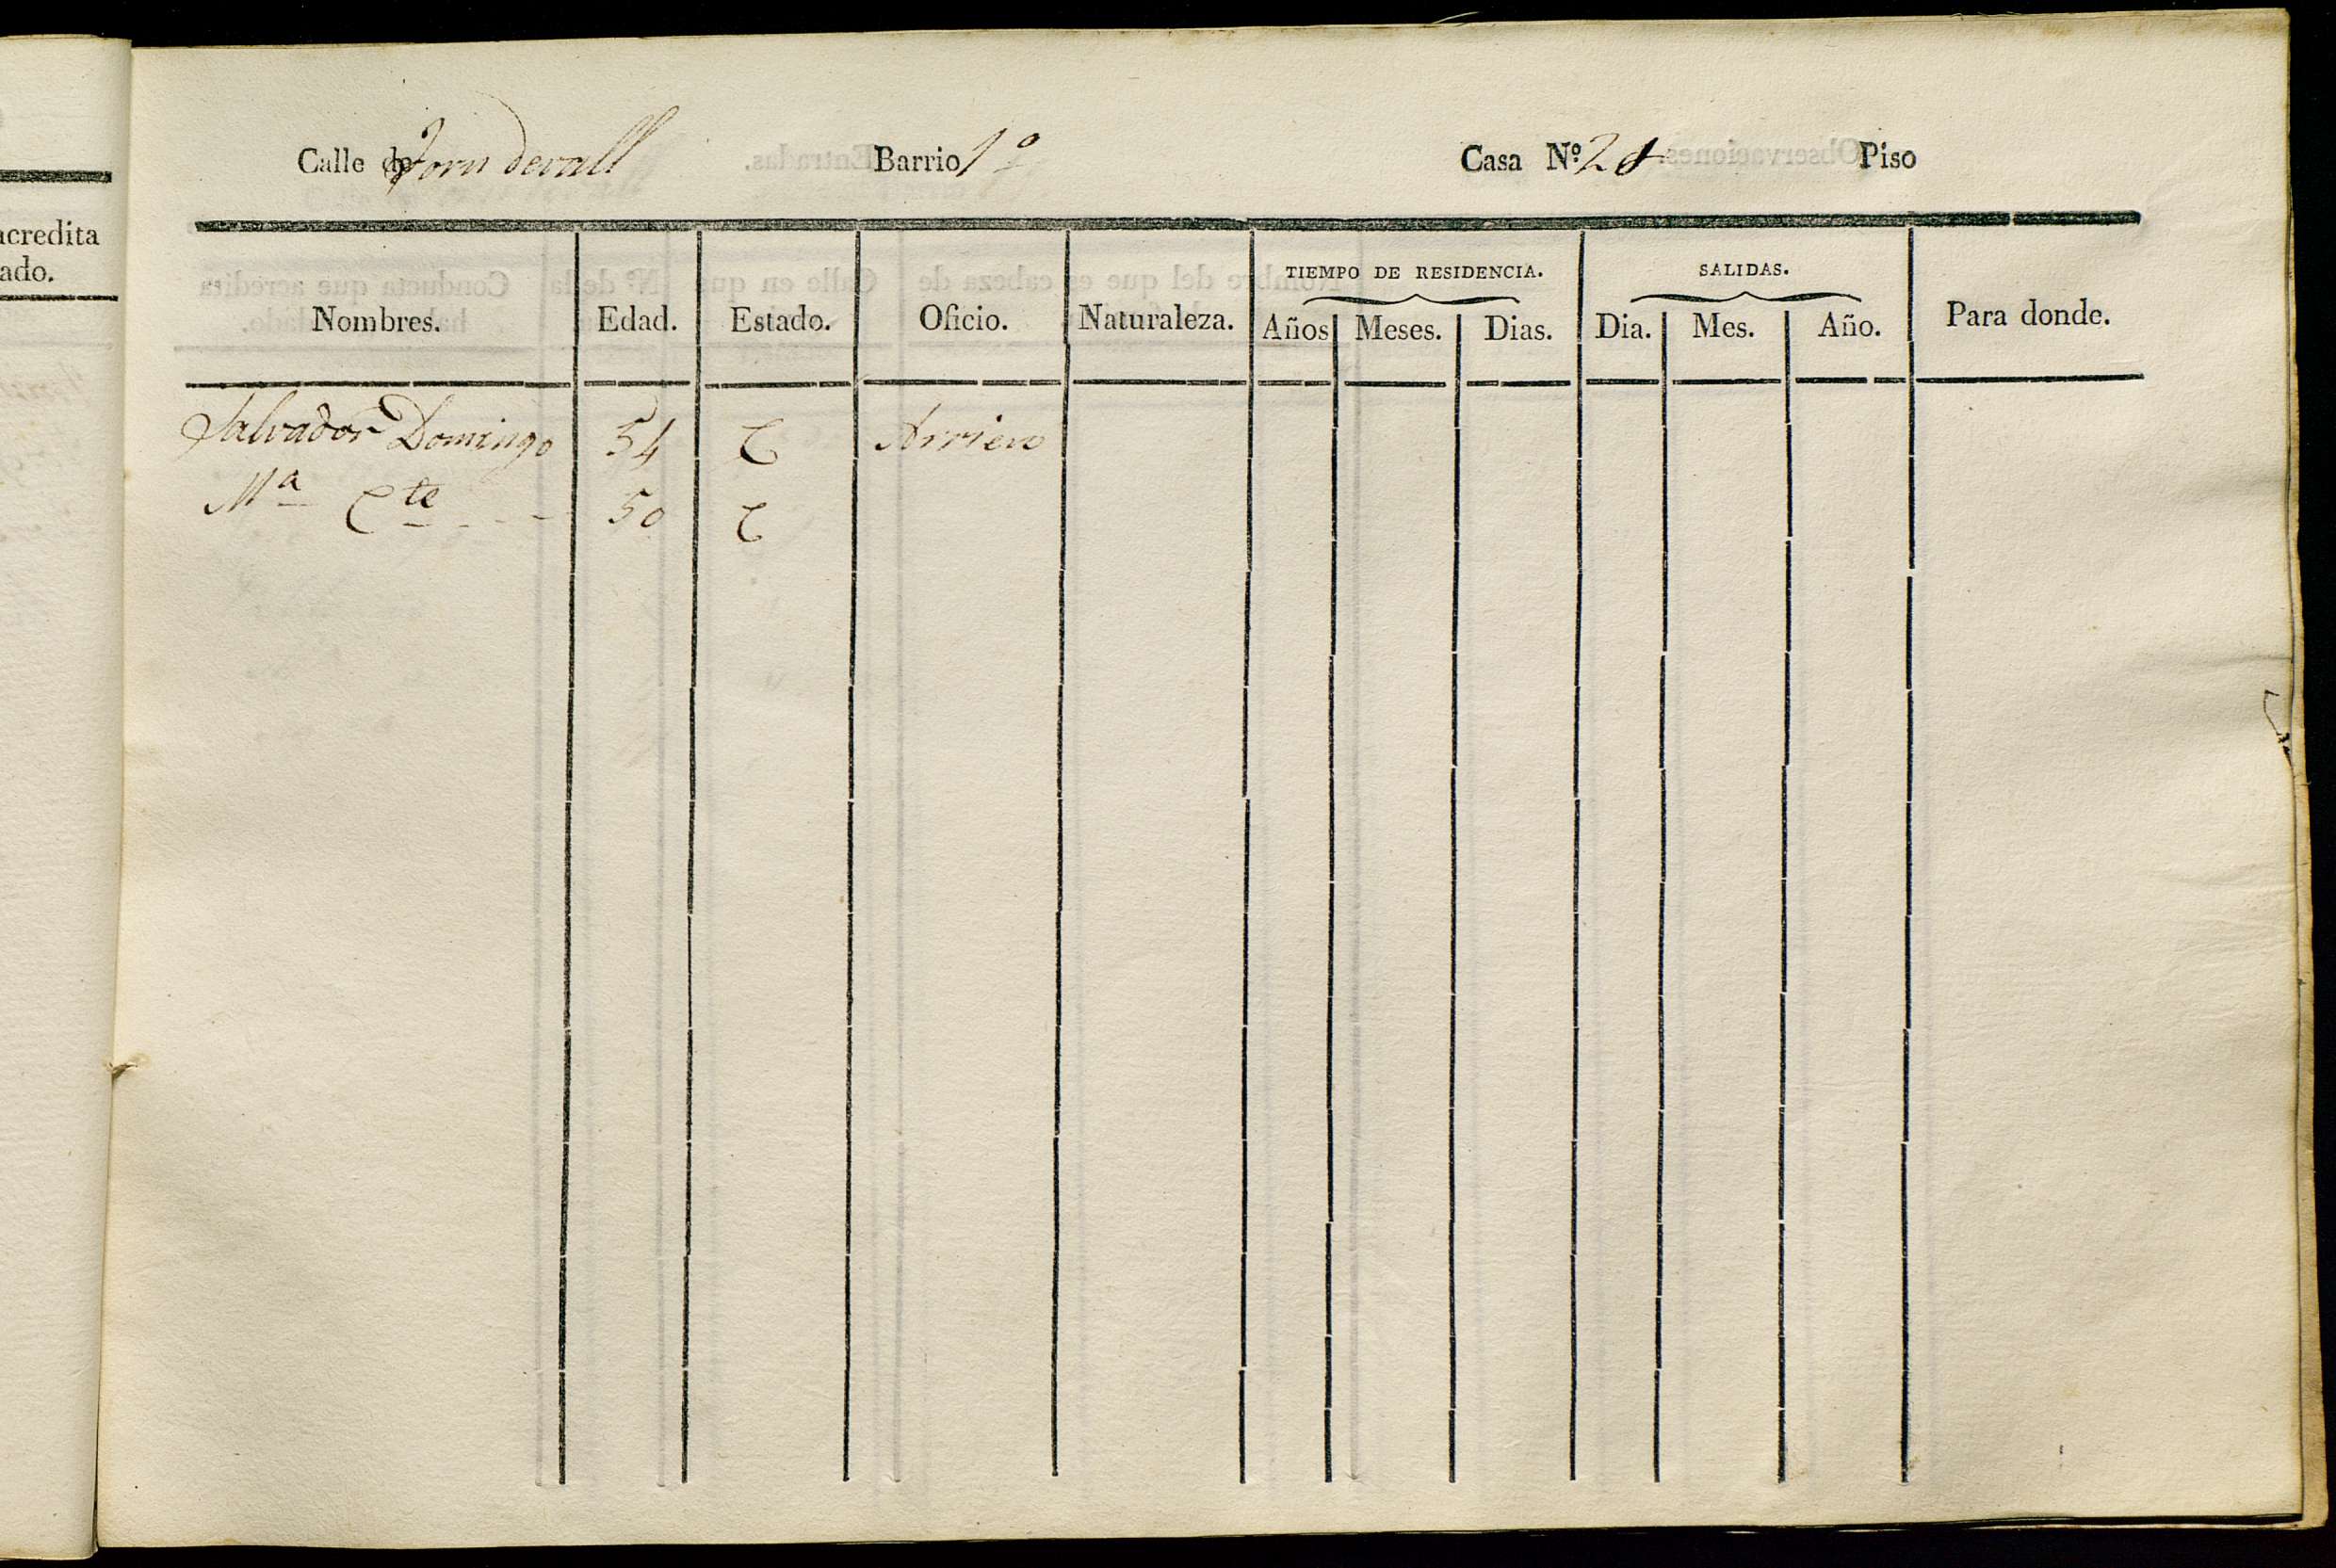 acredita
ado.
Calle de Forn devall Barrio 1º Casa Nº 28 Piso
TIEMPO DE RESIDENCIA. SALIDAS.
Nombres. Edad. Estado. Oficio. Naturaleza. Años Meses. Dias. Dia. Mes. Año. Para donde.
Salvador Domingo 54 C Arriero
Mª Cte 50 C